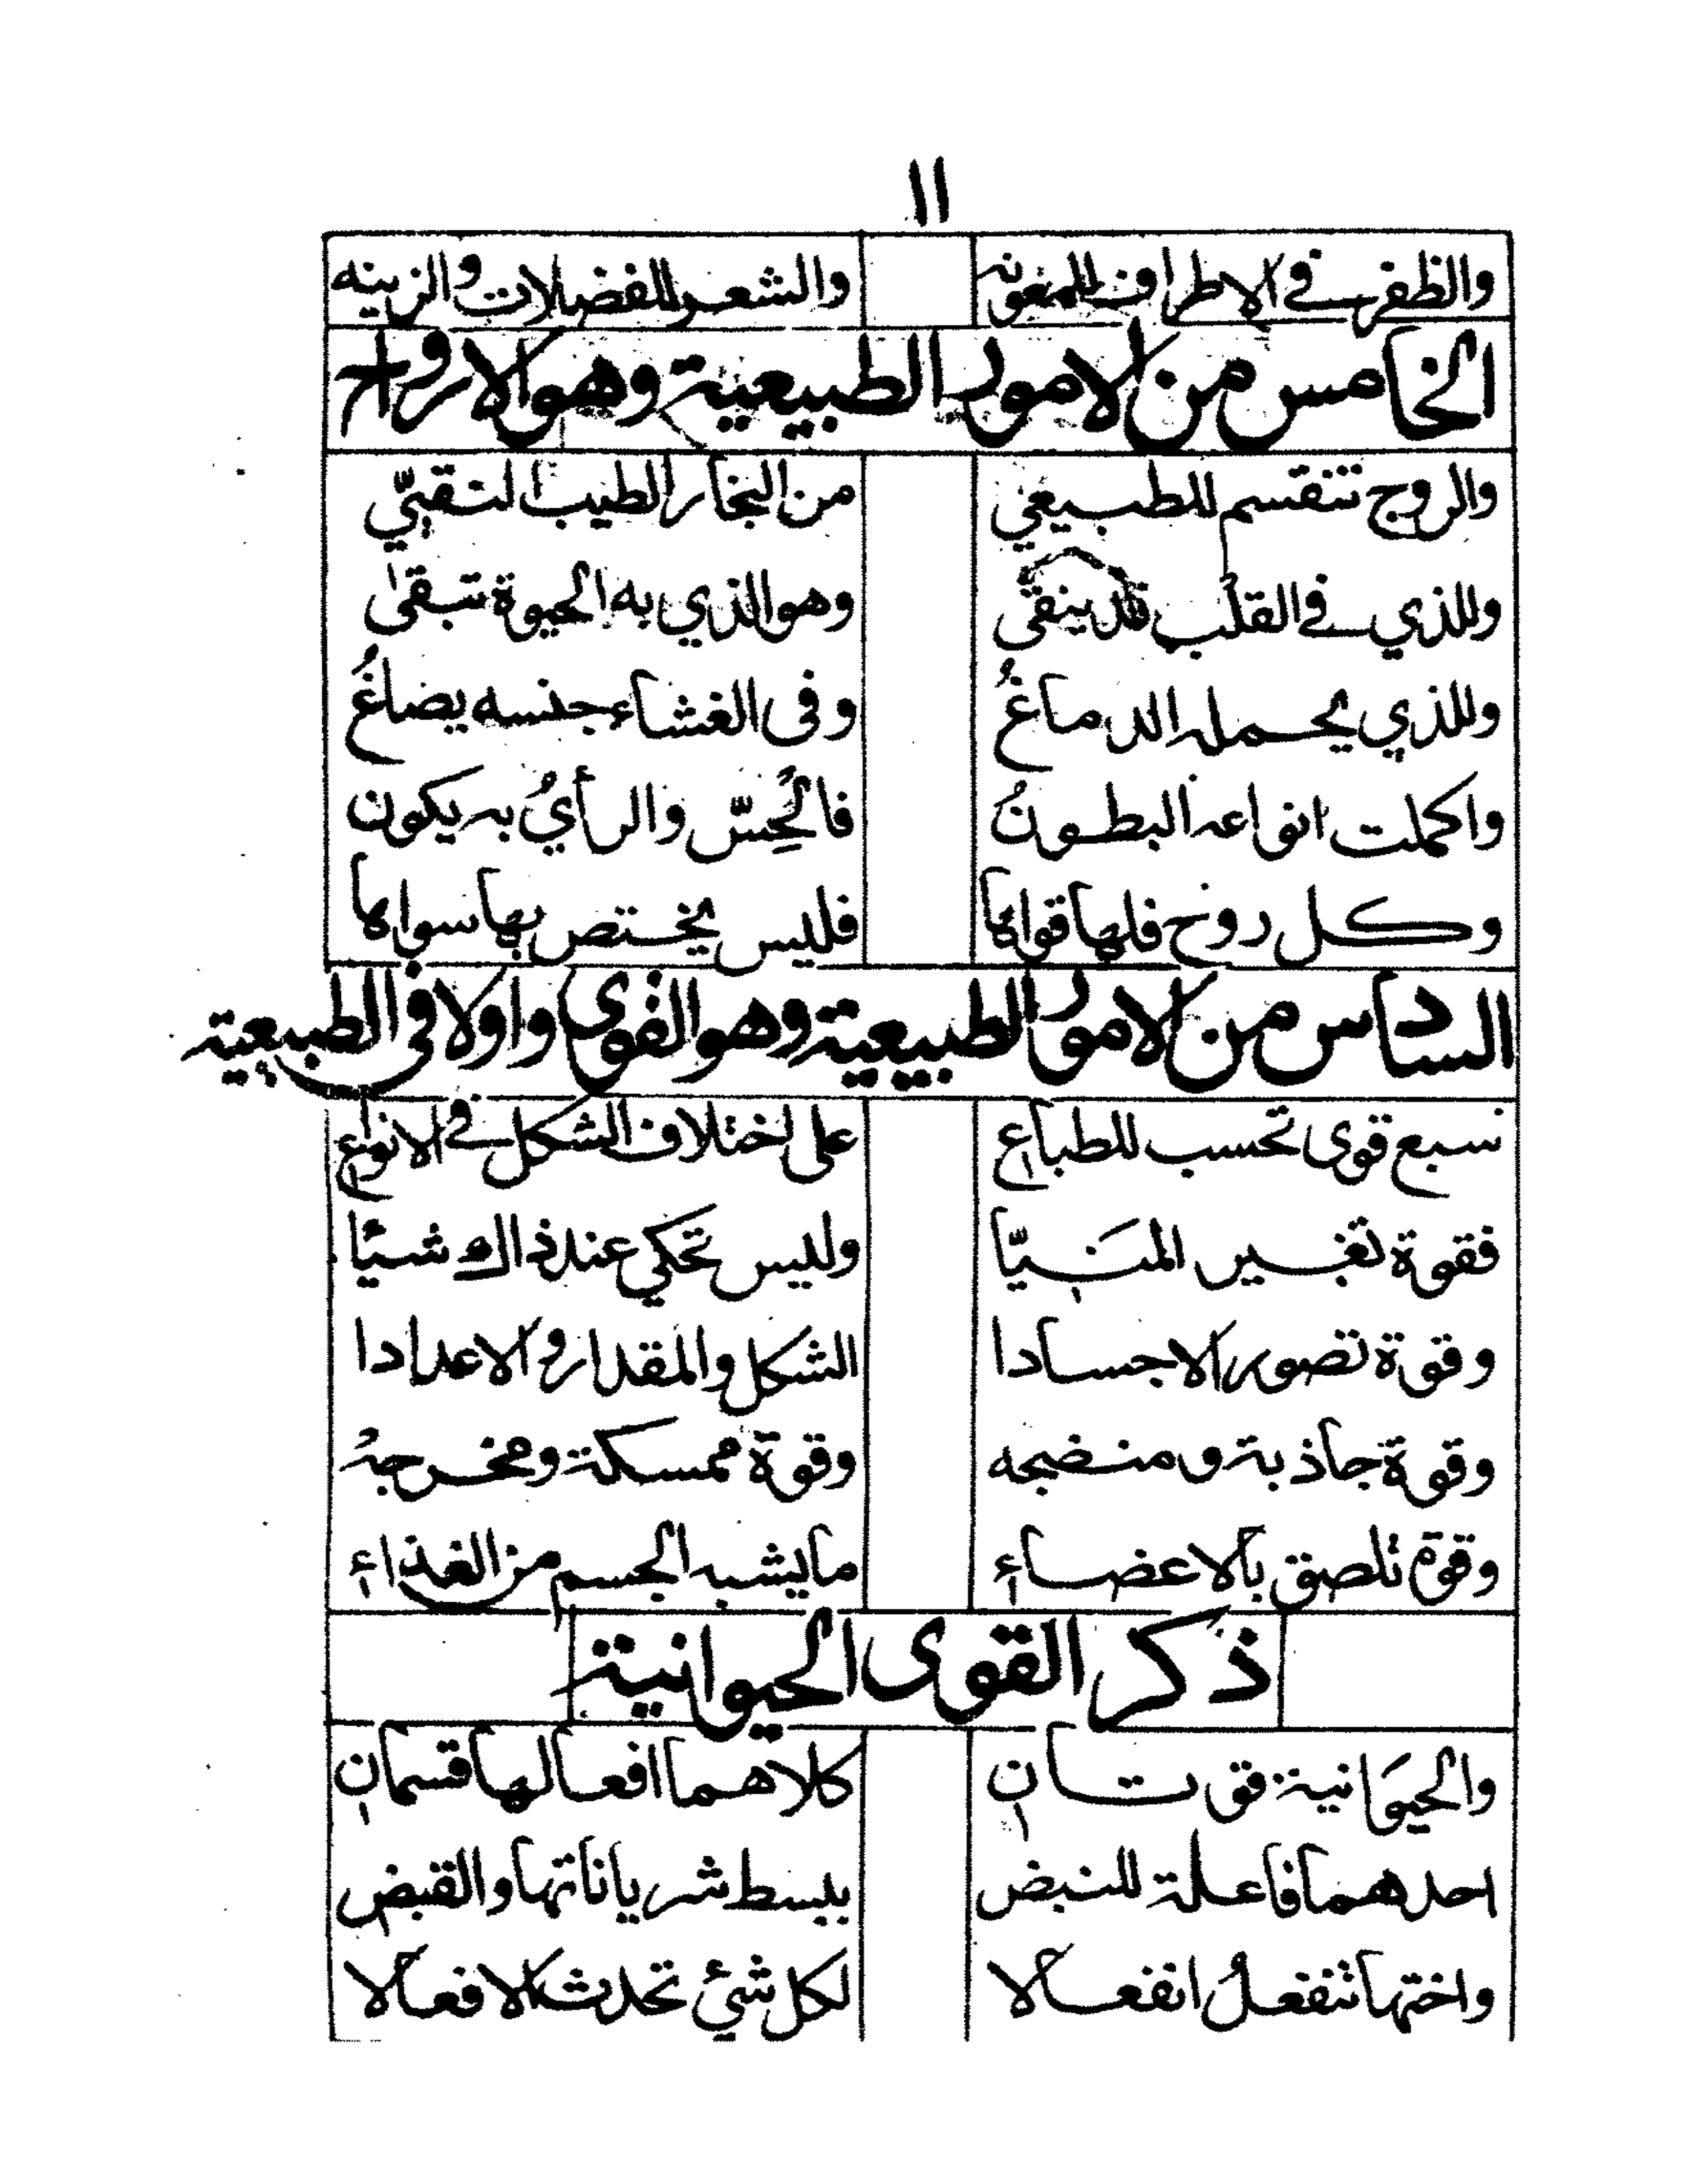 ١١
والظفر في الاطراف للمعونه والشعر للفضلات والزينه
الخامس من الامور الطبيعية وهو الارواح
والروح تنقسم للطبيعي من البخار الطيب النقيّ
وللذي في القلب قد ينقى وهو الذي به الحيوة تبقىٰ
وللذي يحمله الدماغُ وفى الغشاء جنسه يصاغُ
واكملت انواعه البطونُ فالحِسّ والرأيُ به يكون
وكل روح فلها قواها فليس يختص بها سواها
السادس من الامور الطبيعية وهو القوى واولا فى الطبيعية
سبع قوى تحسب للطباع على اختلاف الشكل في الانواع
فقوة تغير المَنِيّا وليس تحكي عند ذاك شيئا
وقوة تصور الاجسادا الشكل والمقدار والاعدادا
وقوة جاذبة ومنضجه وقوة ممسكة ومخرجهُ
وقوة تلصق بالاعضاءِ ما يشبه الجسم من الغذاءِ
ذكر القوى الحيوانية
والحيوَانية قوتانِ كلاهما افعالها قسمانِ
احدهما فاعلة للنبض ببسط شرياناتها والقبضِ
واختها تنفعلُ انفعالا لكل شئ تحدث الافعالا